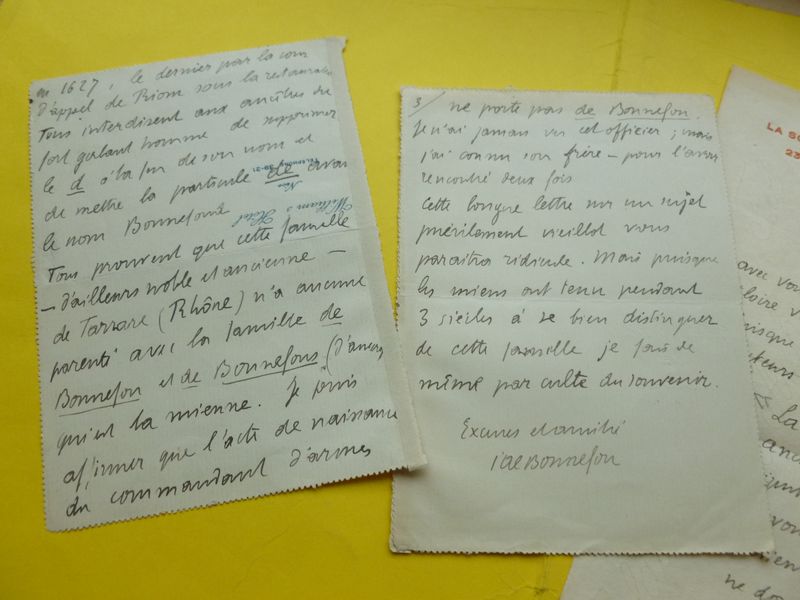 en 1627, le dernier par la cour
d'appel de Riom sous la restauration
Tous interdisent aux ancêtres du
fort galant homme de supprimer
le d à la fin de son nom et
de mettre la particule de avant
le nom Bonnefond
Tous prouvent que cette famille
– d'ailleurs noble et ancienne –
de Tarare (Rhône) n'a aucune
parenté avec la famille de
Bonnefon et de Bonnefons
qui est la mienne. Je puis
affirmer que l'acte de naissance
du commandant d'armes
William's Hotel
3/ ne porte pas de Bonnefon.
Je n'ai jamais vu cet officier ; mais
j'ai connu son frère – pour l'avoir
rencontré deux fois
Cette longue lettre sur un sujet
puérilement vieillot vous
paraîtra ridicule. Mais puisque
les miens ont tenu pendant
3 siècles à se bien distinguer
de cette famille je fais de
même par culte du souvenir.
Excuses et amitié
J de Bonnefon
LA SO
23
avec vou